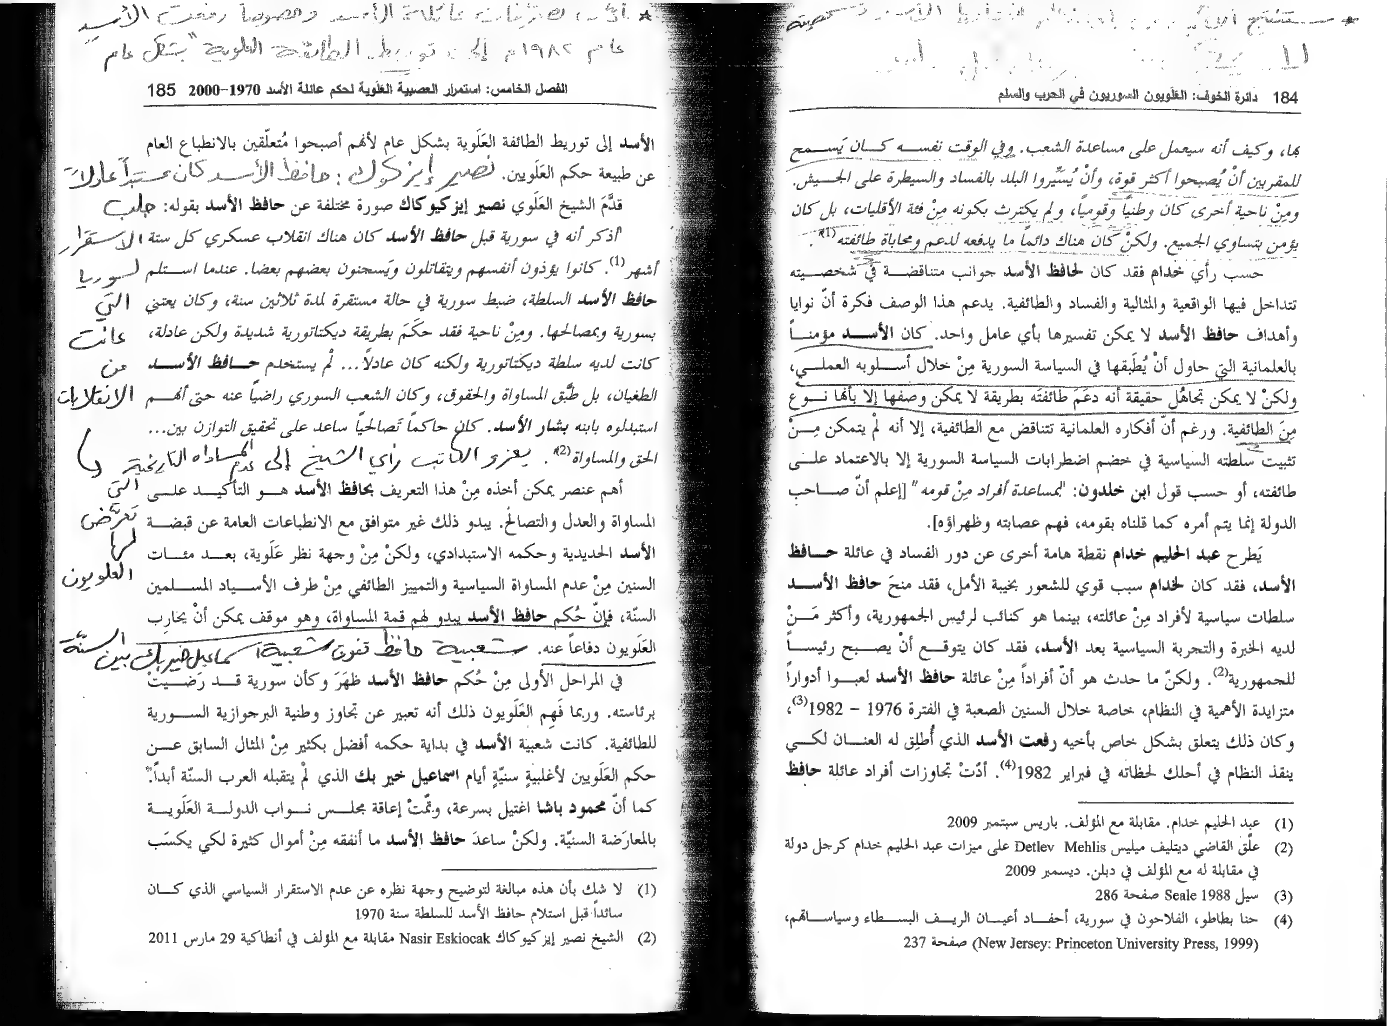 184 دائرة الخوف: العَلَويون السوريون في الحرب والسلم
بها، وكيف أنه سيعمل على مساعدة الشعب. وفي الوقت نفسه كان يَسمح
للمقربين أنْ يُصبحوا أكثر قوة، وأنْ يُسَيِّروا البلد بالفساد والسيطرة على الجيش.
ومِنْ ناحية أخرى كان وطنياً وقومياً، ولم يكترث بكونه مِنْ فئة الأقليات، بل كان
يؤمن بتساوي الجميع. ولكنْ كان هناك دائماً ما يدفعه لدعم ومحاباة طائفته"(1).
حسب رأي خدام فقد كان لحافظ الأسد جوانب متناقضة في شخصيته
تتداخل فيها الواقعية والمثالية والفساد والطائفية. يدعم هذا الوصف فكرة أنّ نوايا
وأهداف حافظ الأسد لا يمكن تفسيرها بأي عامل واحد. كان الأسد مؤمناً
بالعلمانية التي حاول أنْ يُطَبقها في السياسة السورية مِنْ خلال أسلوبه العملي،
ولكنْ لا يمكن تجاهُل حقيقة أنه دعَمَ طائفتَه بطريقة لا يمكن وصفها إلا بأنها نوع
مِنَ الطائفية. ورغم أن أفكاره العلمانية تتناقض مع الطائفية، إلا أنه لم يتمكن مِنْ
تثبيت سلطته السياسية في خضم اضطرابات السياسة السورية إلا بالاعتماد على
طائفته، أو حسب قول ابن خلدون: "بمساعدة أفراد مِنْ قومه" [إعلم أنّ صاحب
الدولة إنما يتم أمره كما قلناه بقومه، فهم عصابته وظهراؤه].
يَطرح عبد الحليم خدام نقطة هامة أخرى عن دور الفساد في عائلة حافظ
الأسد، فقد كان لخدام سبب قوي للشعور بخيبة الأمل، فقد منحَ حافظ الأسد
سلطات سياسية لأفراد مِنْ عائلته، بينما هو كنائب لرئيس الجمهورية، وأكثر مَنْ
لديه الخبرة والتجربة السياسية بعد الأسد، فقد كان يتوقع أنْ يصبح رئيساً
للجمهورية(2). ولكنّ ما حدث هو أنّ أفراداً مِنْ عائلة حافظ الأسد لعبوا أدواراً
متزايدة الأهمية في النظام، خاصة خلال السنين الصعبة في الفترة 1976 – 1982(3)،
وكان ذلك يتعلق بشكل خاص بأخيه رفعت الأسد الذي أُطلِق له العنان لكي
ينقذ النظام في أحلك لحظاته في فبراير 1982(4). أدّتْ تجاوزات أفراد عائلة حافظ
(1) عبد الحليم خدام. مقابلة مع المؤلف. باريس سبتمبر 2009
(2) علّق القاضي ديتليف ميليس Detlev Mehlis على ميزات عبد الحليم خدام كرجل دولة
في مقابلة له مع المؤلف في دبلن. ديسمبر 2009
(3) سيل Seale 1988 صفحة 286
(4) حنا بطاطو، الفلاحون في سورية، أحفاد أعيان الريف البسطاء وسياساتهم،
(New Jersey: Princeton University Press, 1999) صفحة 237
عام ١٩٨٢م إلى توريط الطائفة العلوية "بشكل عام
الفصل الخامس: استمرار العصبية العَلَوية لحكم عائلة الأسد 1970–2000 185
الأسد إلى توريط الطائفة العَلَوية بشكل عام لأنهم أصبحوا مُتعلّقين بالانطباع العام
عن طبيعة حكم العَلَويين. نصير إيزكوك: حافظ الأسد كان مستبداً عادلاً
قدَّمَ الشيخ العَلَوي نصير إيزكيوكاك صورة مختلفة عن حافظ الأسد بقوله: جلب
"أذكر أنه في سورية قبل حافظ الأسد كان هناك انقلاب عسكري كل ستة الاستقرار
أشهر(1). كانوا يؤذون أنفسهم ويتقاتلون ويَسجنون بعضهم بعضا. عندما استلم لسوريا
حافظ الأسد السلطة، ضبط سورية في حالة مستقرة لمدة ثلاثين سنة، وكان يعتني التي
بسورية وبمصالحها. ومِنْ ناحية فقد حكَمَ بطريقة ديكتاتورية شديدة ولكن عادلة، عانت
كانت لديه سلطة ديكتاتورية ولكنه كان عادلاً... لمْ يستخدم حافظ الأسد من
الطغيان، بل طبَّق المساواة والحقوق، وكان الشعب السوري راضياً عنه حتى أنهم الانقلابات
استبدلوه بابنه بشار الأسد. كان حاكماً تَصالحياً ساعد على تحقيق التوازن بين...
الحق والمساواة"(2). يعزو الكاتب رأي الشيخ إلى عدم المساواة التاريخية
أهم عنصر يمكن أخذه مِنْ هذا التعريف بحافظ الأسد هو التأكيد على التي
المساواة والعدل والتصالُح. يبدو ذلك غير متوافق مع الانطباعات العامة عن قبضة تعرَّض
الأسد الحديدية وحكمه الاستبدادي، ولكنْ مِنْ وجهة نظر عَلَوية، بعد مئات لها
السنين مِنْ عدم المساواة السياسية والتمييز الطائفي مِنْ طرف الأسياد المسلمين العلويون
السنّة، فإنّ حُكم حافظ الأسد يبدو لهم قمة المساواة، وهو موقف يمكن أنْ يحارِب
العَلَويون دفاعاً عنه. شعبية حافظ تفوق شعبية اسماعيل خير بك بين السنّة
في المراحل الأولى مِنْ حُكم حافظ الأسد ظهَرَ وكأن سورية قد رَضيَتْ
برئاسته. وربما فَهِم العَلَويون ذلك أنه تعبير عن تجاوز وطنية البرجوازية السورية
للطائفية. كانت شعبية الأسد في بداية حكمه أفضل بكثير مِنْ المثال السابق عن
حكم العَلَويين لأغلبيةٍ سنيّةٍ أيام اسماعيل خير بك الذي لمْ يتقبله العرب السنّة أبداً.
كما أنّ محمود باشا اغتيل بسرعة، وتمّتْ إعاقة مجلس نواب الدولة العَلَوية
بالمعارَضة السنيّة. ولكنْ ساعدَ حافظ الأسد ما أنفقه مِنْ أموال كثيرة لكي يكسَب
(1) لا شك بأن هذه مبالغة لتوضيح وجهة نظره عن عدم الاستقرار السياسي الذي كان
سائداً قبل استلام حافظ الأسد للسلطة سنة 1970
(2) الشيخ نصير إيزكيوكاك Nasir Eskiocak مقابلة مع المؤلف في أنطاكية 29 مارس 2011